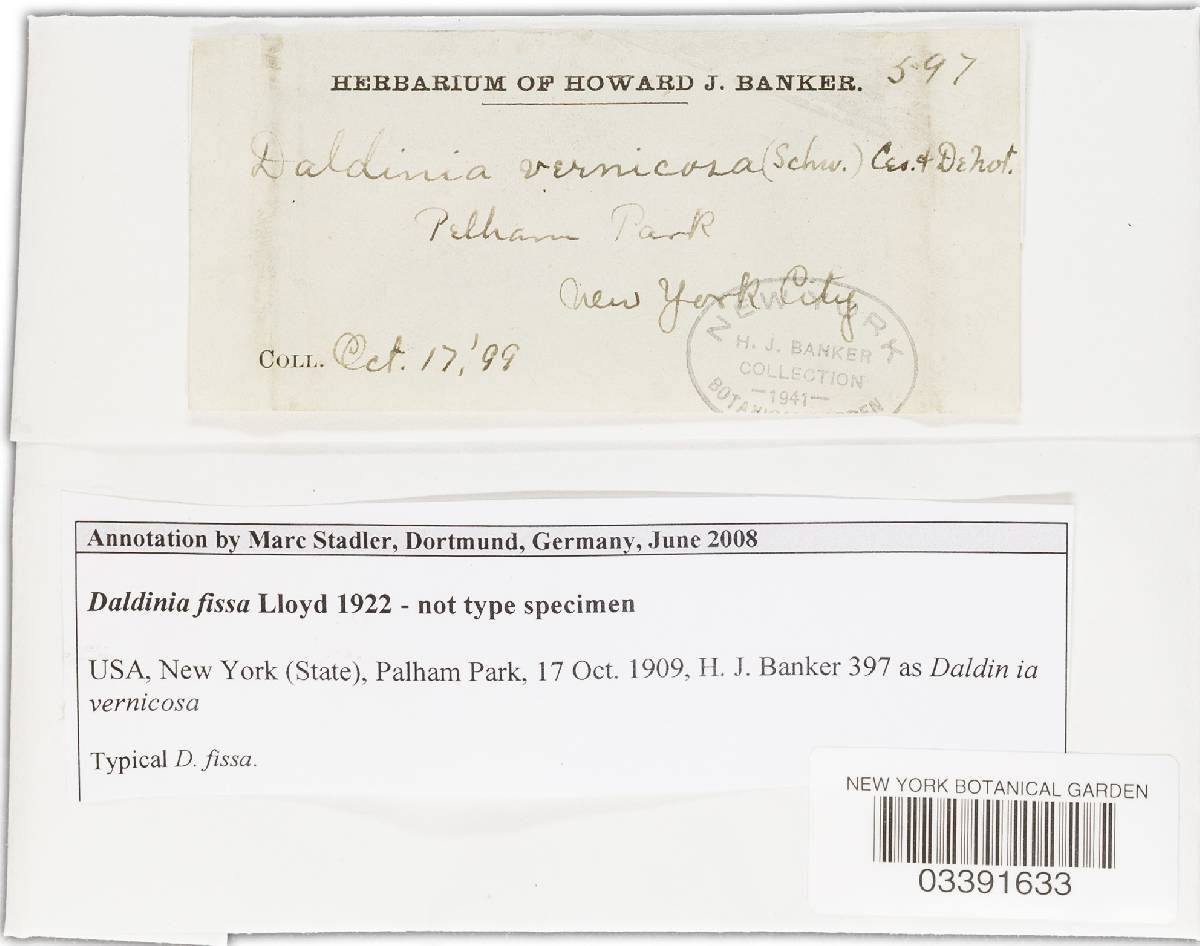 HERBARIUM OF HOWARD J. BANKER. 597
Daldinia vernicosa (Schw.) Ces. & DeNot.
Pelham Park
New York City
COLL. Oct. 17, '99
NEW YORK
H. J. BANKER
COLLECTION
—1941—
BOTANICAL GARDEN
Annotation by Marc Stadler, Dortmund, Germany, June 2008
Daldinia fissa Lloyd 1922 - not type specimen
USA, New York (State), Palham Park, 17 Oct. 1909, H. J. Banker 397 as Daldin ia
vernicosa
Typical D. fissa.
NEW YORK BOTANICAL GARDEN
03391633